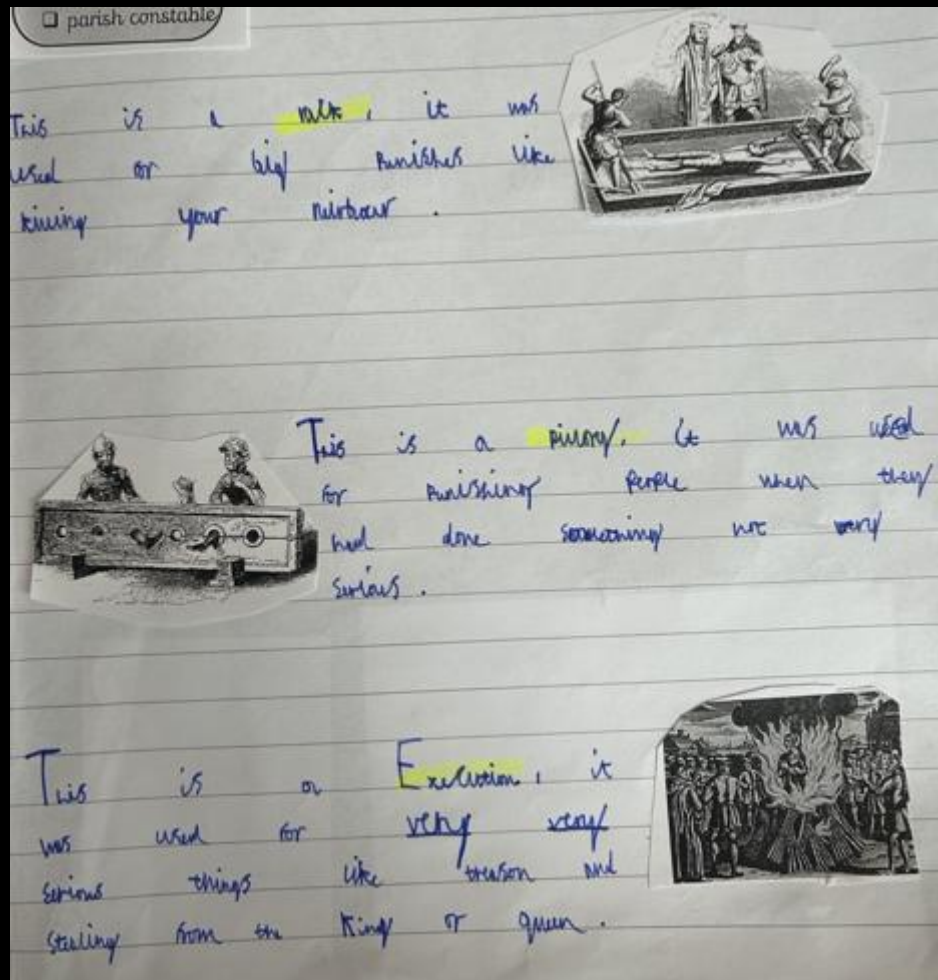 parish constable
This is a rack, it was
used for big Punishes like
killing your neirbour.
This is a pillory. it was used
for Punishing People when they
had done something not very
serious.
This is a Execution, it
was used for very very
serious things like treason and
steeling from the King or queen.